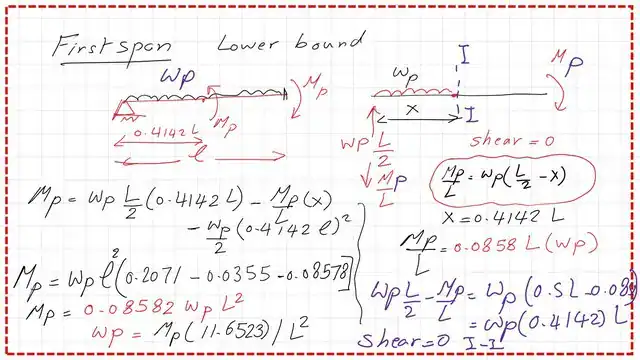 First span Lower bound
Wp
Mp
Mp
0.4142 L
l
Wp
I
Mp
X
I
Wp L/2
Mp/L
shear = 0
Mp/L = wp(L/2 - X)
X = 0.4142 L
Mp/L = 0.0858 L (wp)
Mp = wp L/2 (0.4142 L) - Mp/L (x)
- wp/2 (0.4142 l)²
Mp = wp l² (0.2071 - 0.0355 - 0.08578]
Mp = 0.08582 wp L²
wp = Mp (11.6523) / L²
wp L/2 - Mp/L = wp (0.5L - 0.08
= wp (0.4142) L
shear = 0 I-I